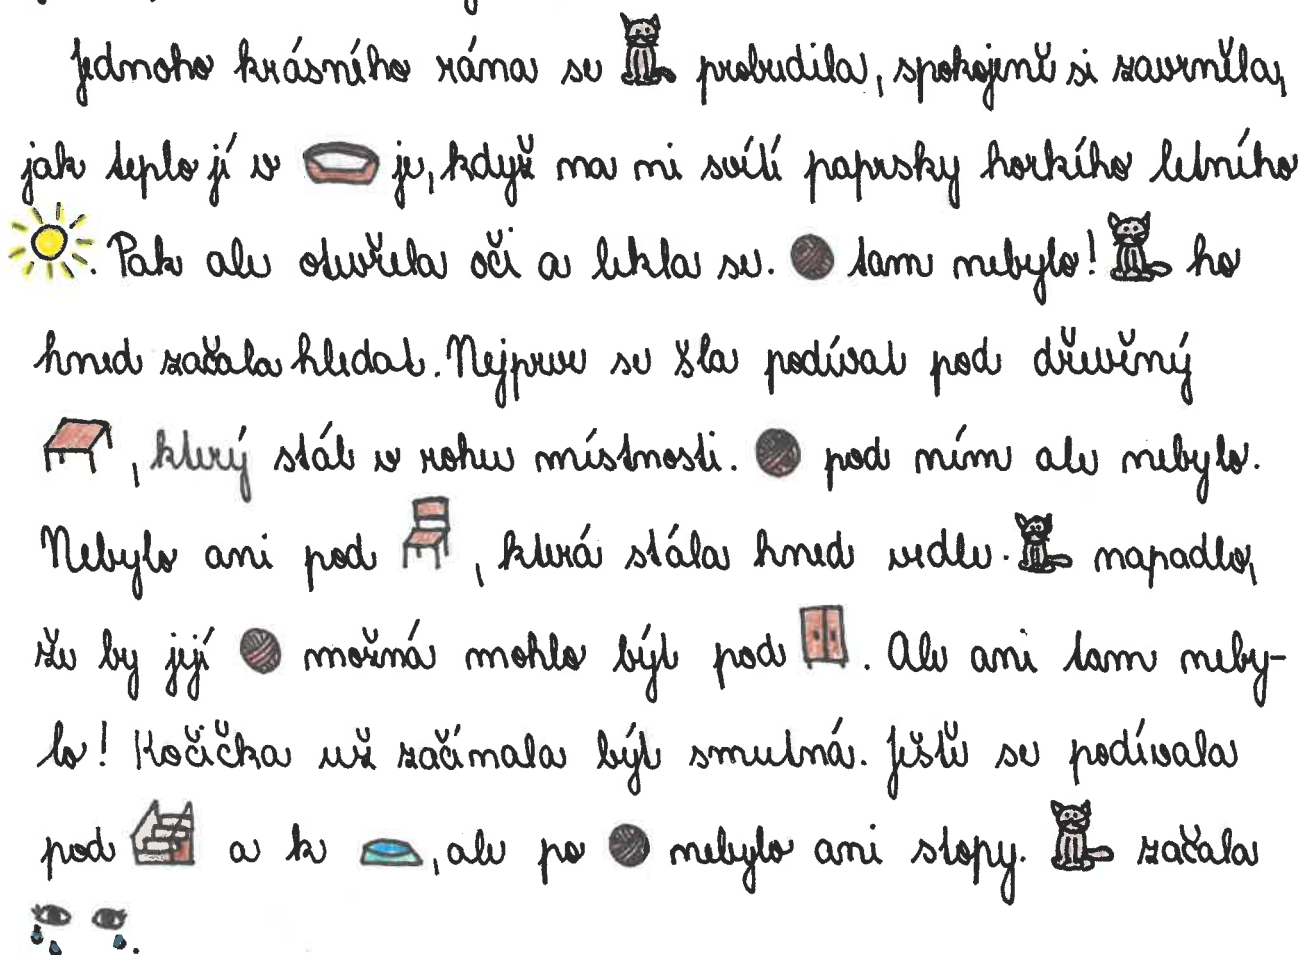 Jednoho krásného rána se probudila, spokojeně si zavrněla,
jak teplo jí v je, když na ni svítí paprsky horkého letního
. Pak ale otevřela oči a lekla se. tam nebylo! ho
hned začala hledat. Nejprve se šla podívat pod dřevěný
, který stál v rohu místnosti. pod ním ale nebylo.
Nebylo ani pod , která stála hned vedle. napadlo,
že by její možná mohlo být pod . Ale ani tam neby-
lo! Kočička už začínala být smutná. Ještě se podívala
pod a k , ale po nebylo ani stopy. začala
.